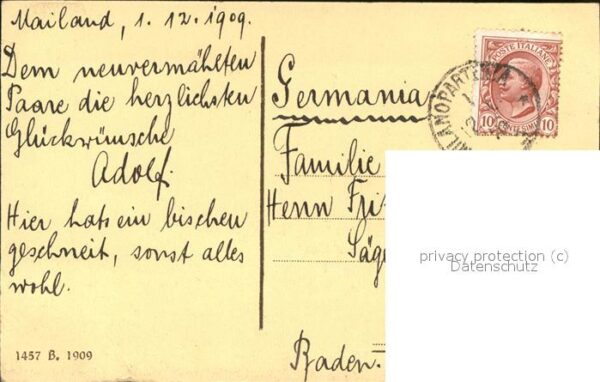 Mailand, 1. 12. 1909.
Dem neuvermählten
Paare die herzlichsten
Glückwünsche
Adolf.
Hier hats ein bischen
geschneit, sonst alles
wohl.
1457 B. 1909
POSTE ITALIANE
10 CENTESIMI 10
MILANO PARTENZA
Germania
Familie
Henn Fri
Säge
Baden.
privacy protection (c)
Datenschutz